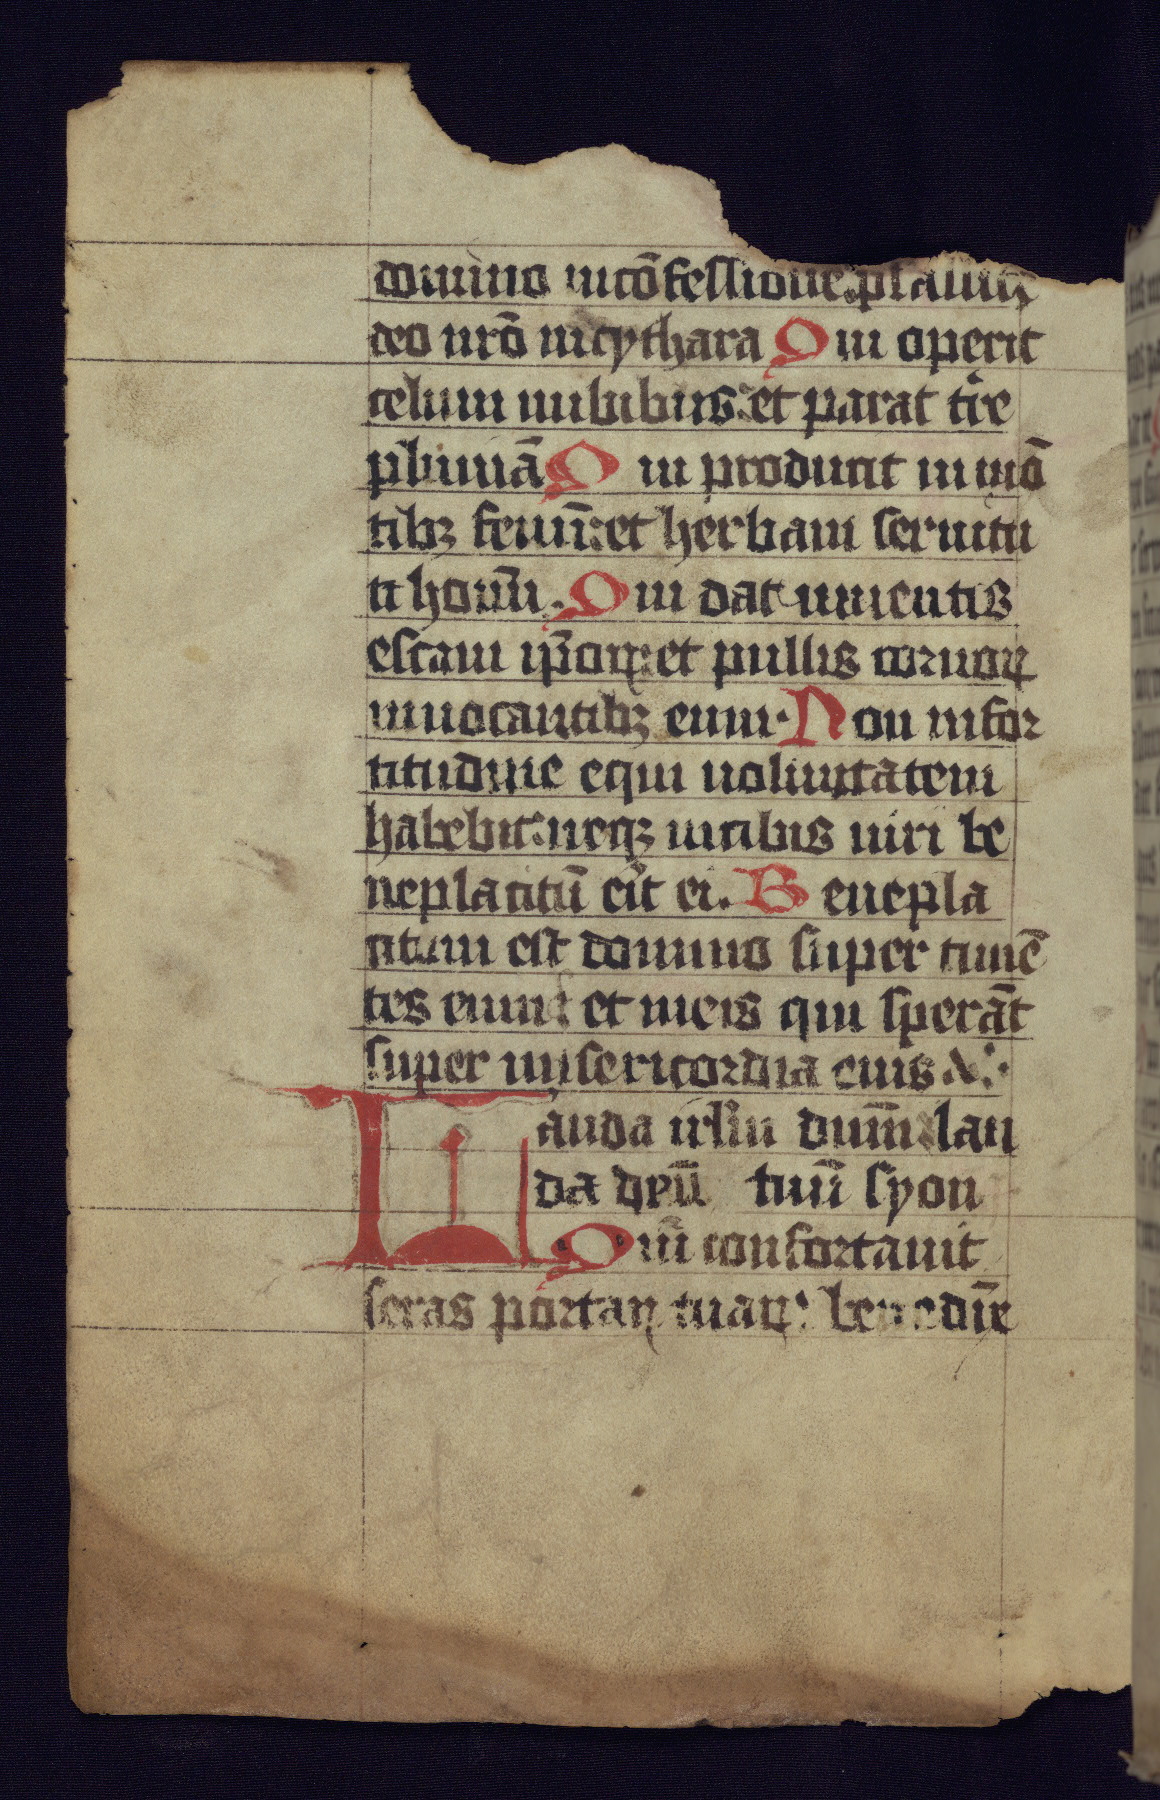 domino in cōfessione: psallit͛
deo nrō in cythara Qui operit
celum nubibus: et parat tr̄e
pluuiā Qui producit in mō
tibꝫ fenū: et herbam seruitu
ti hoīm. Qui dat iumentis
escam ip̄oꝝ: et pullis coruoꝝ
inuocantibꝫ eum. Non in for
titudine equi uoluntatem
habebit: neqꝫ in tibiis uiri be
neplacitū erit ei. Benepla
citum est domino super timē
tes eum: et in eis qui sperāt
super misericordia eius
Lauda irl̄m dūm: lau
da deū tuū syon
Qm̄ confortauit
seras portaꝝ tuaꝝ: benedix̄